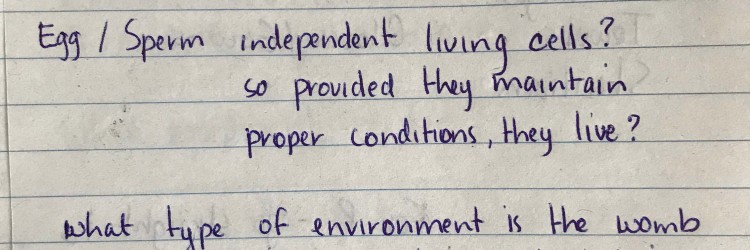 Egg / Sperm independent living cells?
so provided they maintain
proper conditions, they live?
what type of environment is the womb